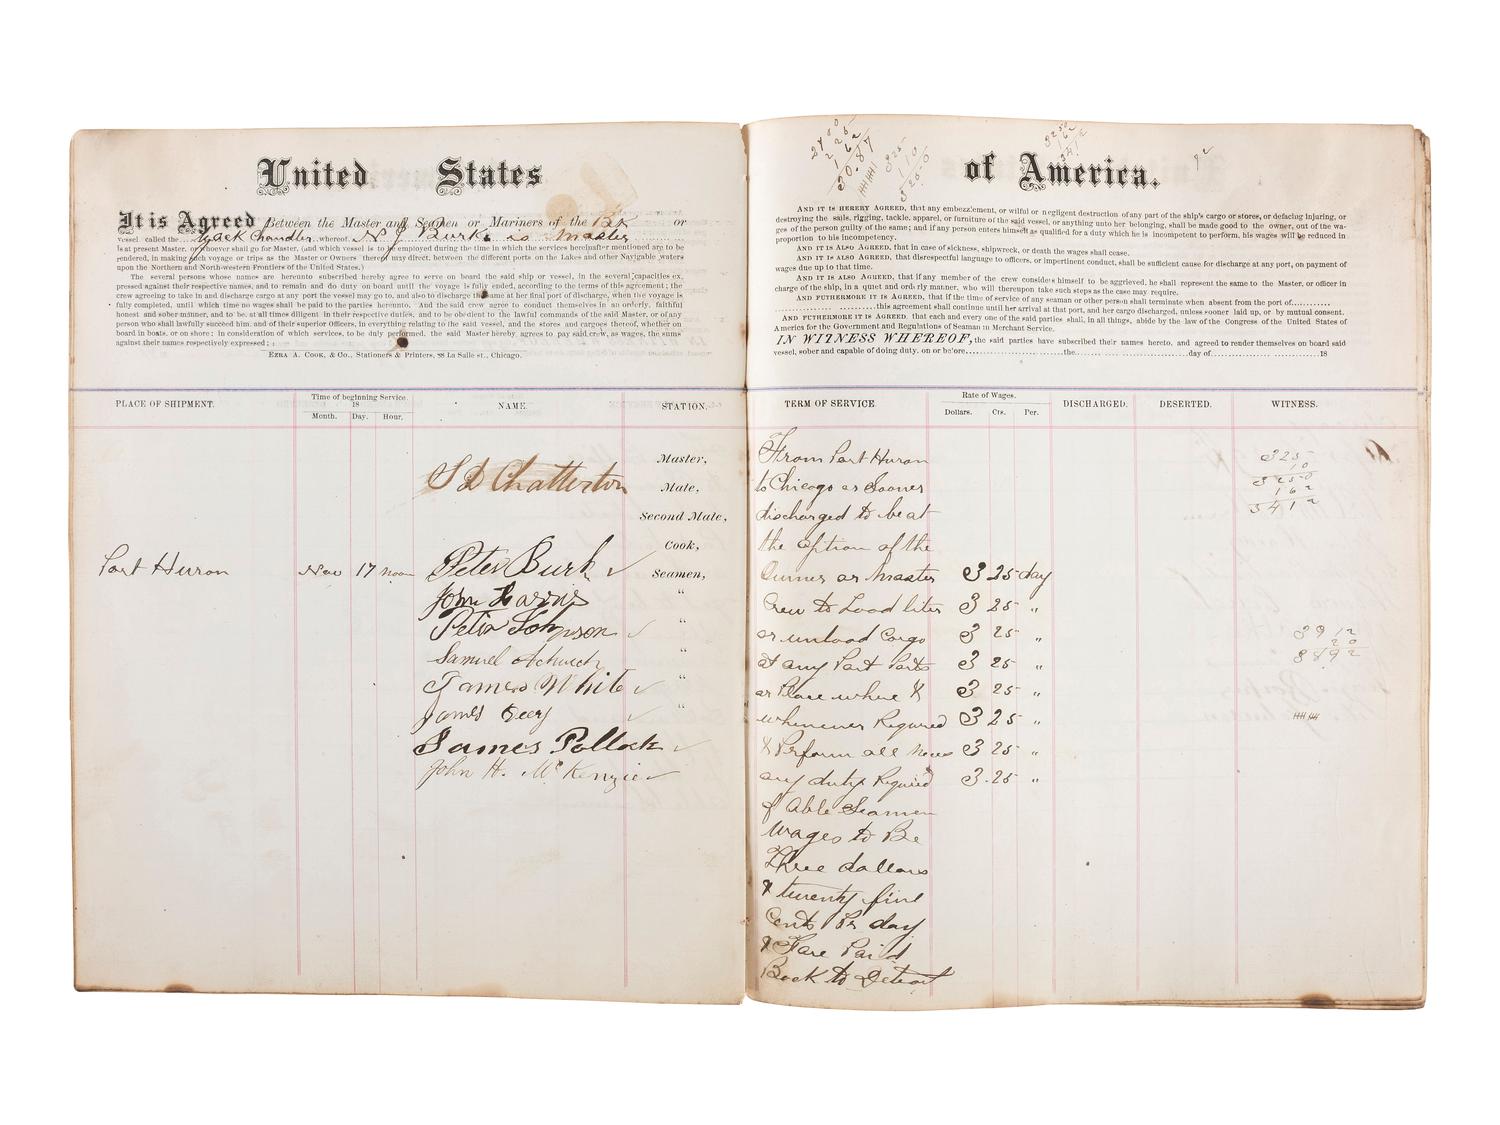 United States
It is Agreed Between the Master and Seamen or Mariners of the Bk or
vessel called the Zach Chandler whereof N J Burke is Master
is at present Master, or whoever shall go for Master, (and which vessel is to be employed during the time in which the services hereinafter mentioned are to be
rendered, in making such voyage or trips as the Master or Owners thereof may direct, between the different ports on the Lakes and other Navigable waters
upon the Northern and North-western Frontiers of the United States.)
The several persons whose names are hereunto subscribed hereby agree to serve on board the said ship or vessel, in the several capacities ex,
pressed against their respective names, and to remain and do duty on board until the voyage is fully ended, according to the terms of this agreement; the
crew agreeing to take in and discharge cargo at any port the vessel may go to, and also to discharge the same at her final port of discharge, when the voyage is
fully completed, until which time no wages shall be paid to the parties hereunto. And the said crew agree to conduct themselves in an orderly, faithful
honest and sober manner, and to be, at all times diligent in their respective duties, and to be obedient to the lawful commands of the said Master, or of any
person who shall lawfully succeed him, and of their superior Officers, in everything relating to the said vessel, and the stores and cargoes thereof, whether on
board in boats, or on shore; in consideration of which services, to be duly performed, the said Master hereby agrees to pay said crew, as wages, the sums
against their names respectively expressed;
EZRA A. COOK, & CO., Stationers & Printers, 88 La Salle st., Chicago.
PLACE OF SHIPMENT.
Time of beginning Service.
18
Month. Day. Hour.
NAME.
STATION.
Master,
S D Chatterton Mate,
Second Mate,
Cook,
Port Huron Nov 17 noon Peter Burk Seamen,
John Harris "
Peter Johnson "
Samuel "
James White "
James Geery
James Pollock
John H. McKenzie
of America.
325
10
3250
3250
162
3412
92
AND IT IS HEREBY AGREED, that any embezzlement, or wilful or negligent destruction of any part of the ship's cargo or stores, or defacing injuring, or
destroying the sails, rigging, tackle, apparel, or furniture of the said vessel, or anything unto her belonging, shall be made good to the owner, out of the wa-
ges of the person guilty of the same; and if any person enters himself as qualified for a duty which he is incompetent to perform, his wages will be reduced in
proportion to his incompetency.
AND IT IS ALSO AGREED, that in case of sickness, shipwreck, or death the wages shall cease.
AND IT IS ALSO AGREED, that disrespectful language to officers, or impertinent conduct, shall be sufficient cause for discharge at any port, on payment of
wages due up to that time.
AND IT IS ALSO AGREED, that if any member of the crew considers himself to be aggrieved, he shall represent the same to the Master, or officer in
charge of the ship, in a quiet and orderly manner, who will thereupon take such steps as the case may require.
AND FUTHERMORE IT IS AGREED, that if the time of service of any seaman or other person shall terminate when absent from the port of............
....................this agreement shall continue until her arrival at that port, and her cargo discharged, unless sooner laid up, or by mutual consent.
AND FUTHERMORE IT IS AGREED, that each and every one of the said parties shall, in all things, abide by the law of the Congress of the United States of
America for the Government and Regulations of Seaman in Merchant Service.
IN WITNESS WHEREOF, the said parties have subscribed their names hereto, and agreed to render themselves on board said
vessel, sober and capable of doing duty, on or before..............................the..............................day of..............................18
TERM OF SERVICE.
Rate of Wages.
Dollars. Cts. Per.
DISCHARGED.
DESERTED.
WITNESS.
From Port Huron
to Chicago or Sooner
discharged to be at
the option of the
Owner or Master 3 25 day
Crew to Load liter 3 25 "
or unload Cargo 3 25 "
at any Port Ports 3 25 "
or Place where & 3 25 "
whenever Required 3 25 "
& Perform all neces 3 25 "
ary duty Required 3.25 "
of Able Seamen
Wages to Be
Three dollars
& twenty five
Cents Pr day
& Fare Paid
Back to Detroit
325
10
3250
162
3412
3912
20
8892